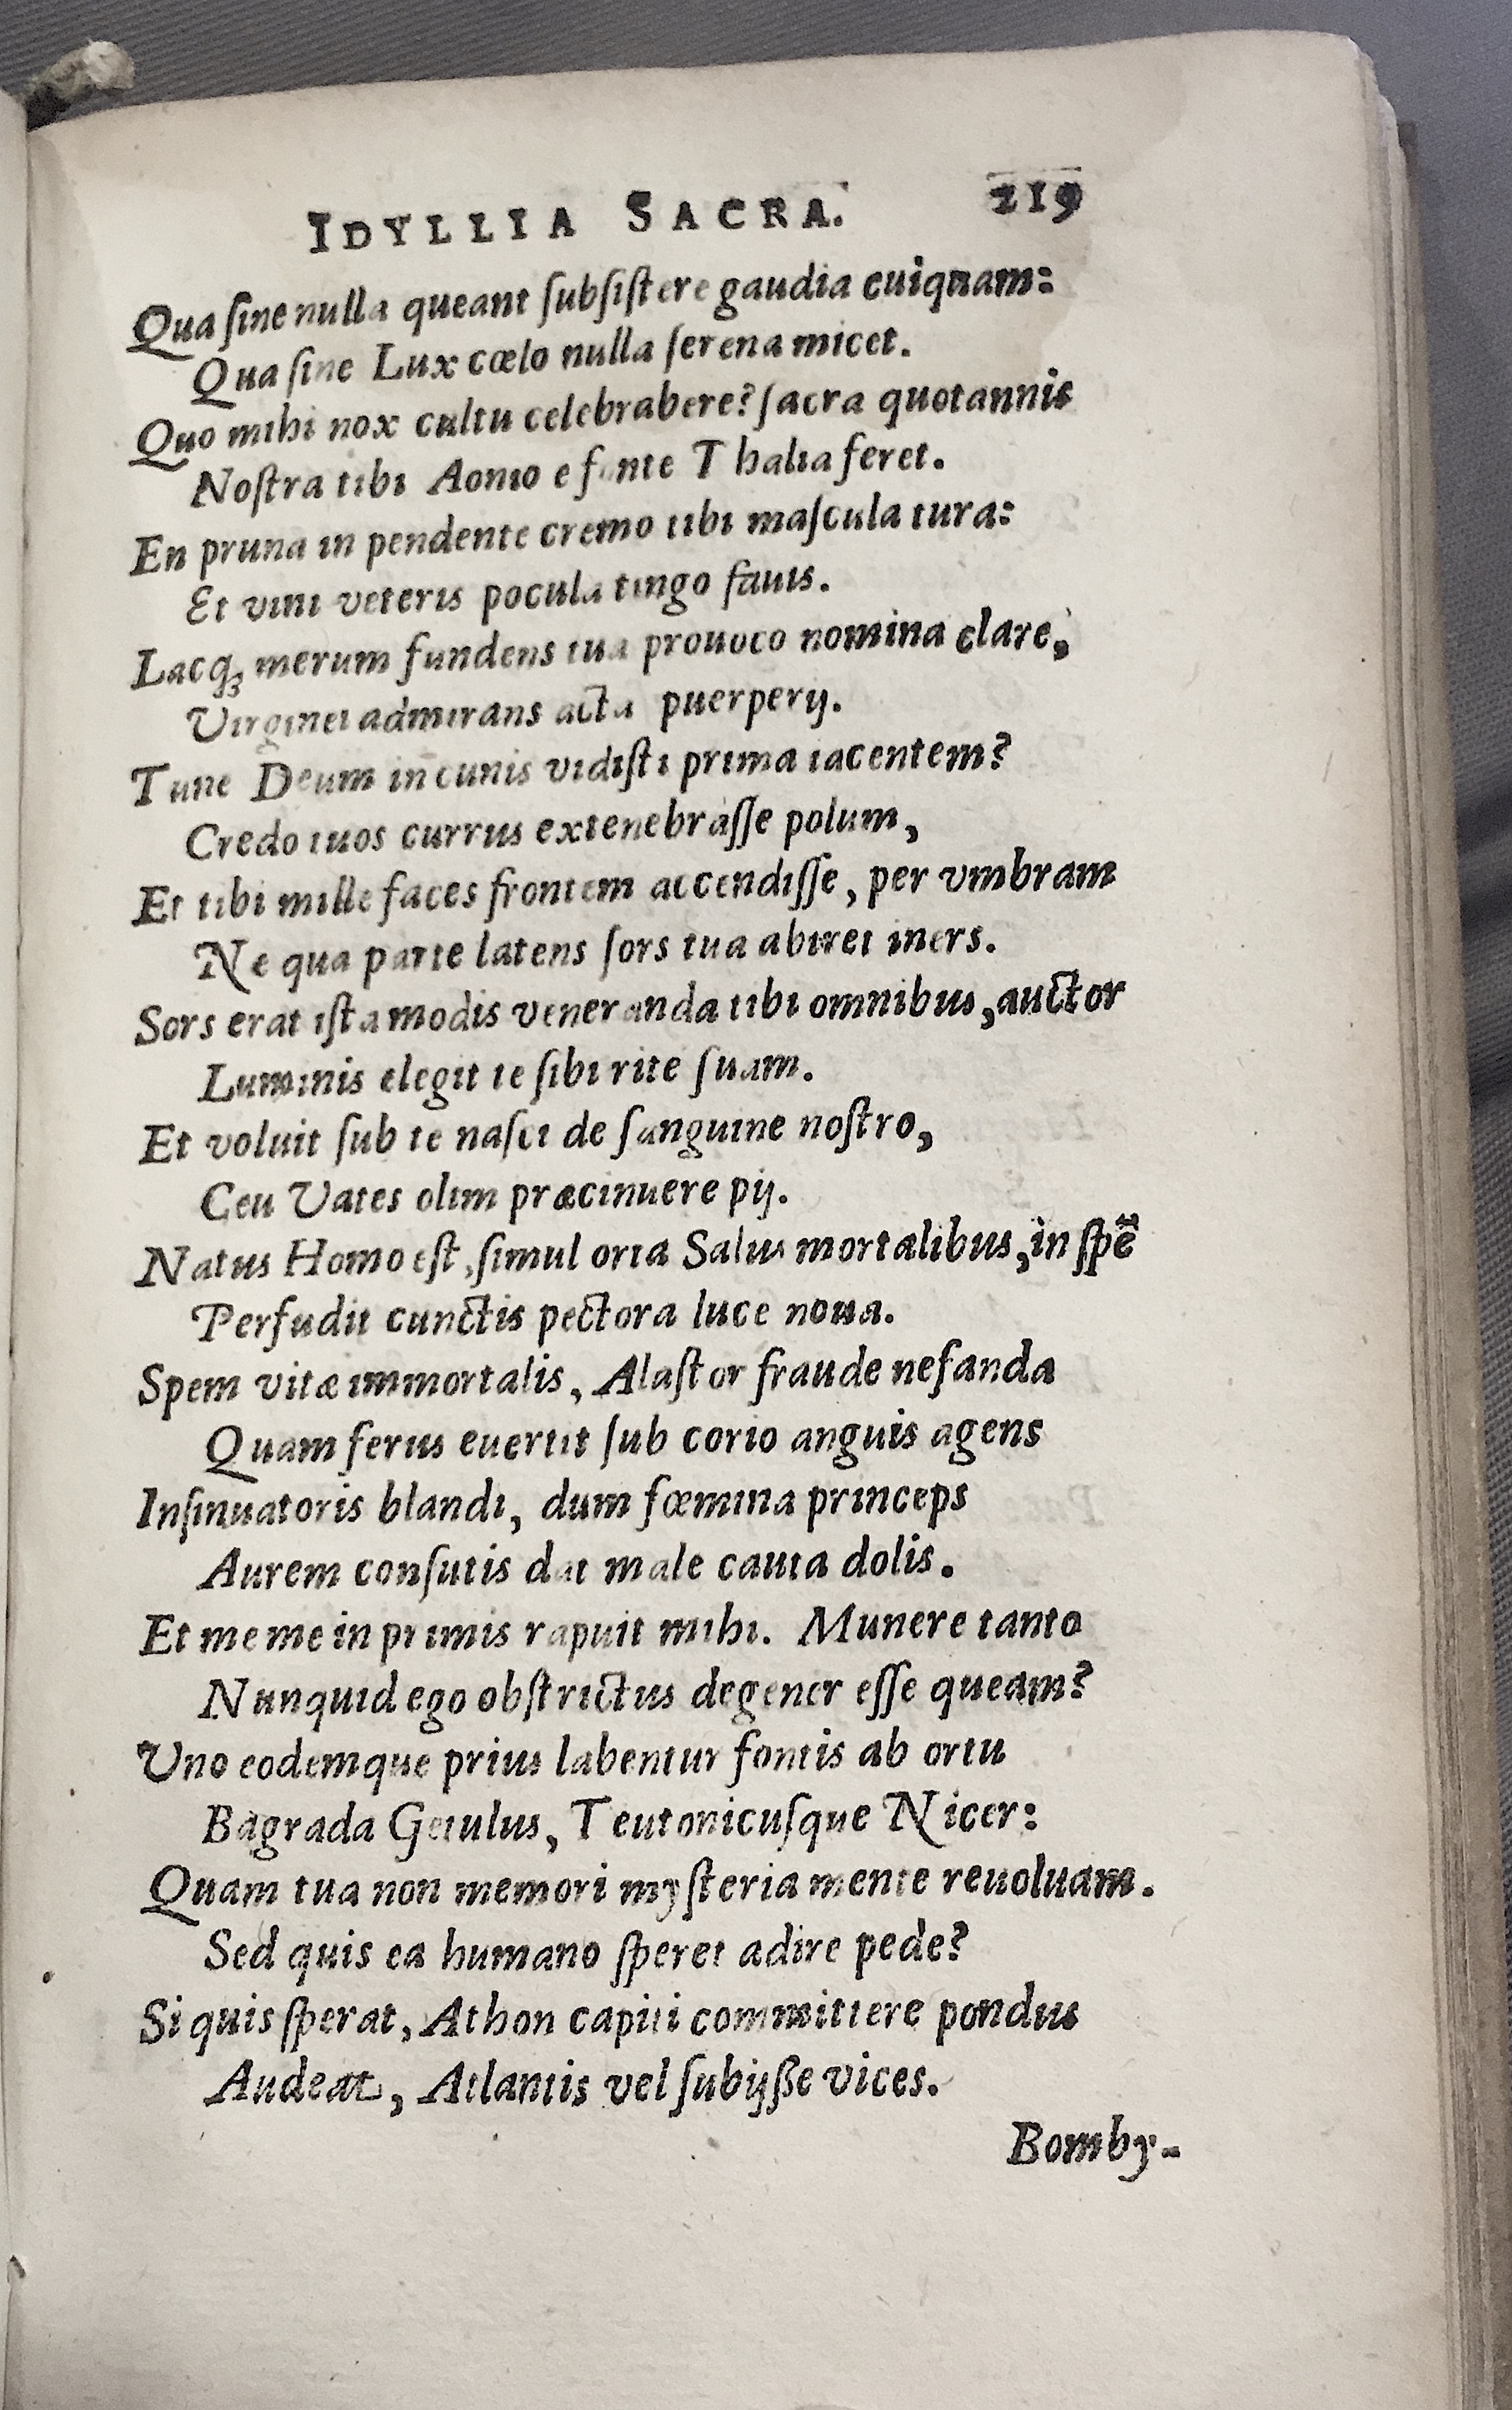 IDYLLIA SACRA. 219
Qua ſine nulla queant ſubſiſtere gaudia cuiquam:
Qua ſine Lux cœlo nulla ſerena micet.
Quo mihi nox cultu celebrabere? ſacra quotannis
Noſtra tibi Aonio e fonte Thalia feret.
En pruna in pendente cremo tibi maſcula tura:
Et vini veteris pocula tingo fauis.
Lacq́ꝫ merum fundens tua prouoco nomina clare,
Virginei admirans acta puerperij.
Tune Deum in cunis vidiſti prima iacentem?
Credo tuos currus extenebràſſe polum,
Et tibi mille faces frontem accendiſſe, per vmbram
Ne qua parte latens ſors tua abiret iners.
Sors erat iſta modis veneranda tibi omnibus, auctor
Luminis elegit te ſibi rite ſuam.
Et voluit ſub te naſci de ſanguine noſtro,
Ceu Vates olim præcinuere pij.
Natus Homo eſt, ſimul orta Salus mortalibus, in ſpẽ
Perfudit cunctis pectora luce noua.
Spem vitæ immortalis, Alaſtor fraude nefanda
Quam ferus euertit ſub corio anguis agens
Inſinuatoris blandi, dum fœmina princeps
Aurem conſutis dat male cauta dolis.
Et meme in primis rapuit mihi. Munere tanto
Nunquid ego obſtrictus degener eſſe queam?
Uno eodemque prius labentur fontis ab ortu
Bagrada Getulus, Teutonicuſque Nicer:
Quam tua non memori myſteria mente reuoluam.
Sed quis ea humano ſperet adire pede?
Si quis ſperat, Athon capiti committere pondus
Audeat, Atlantis vel ſubijße vices.
Bomby-